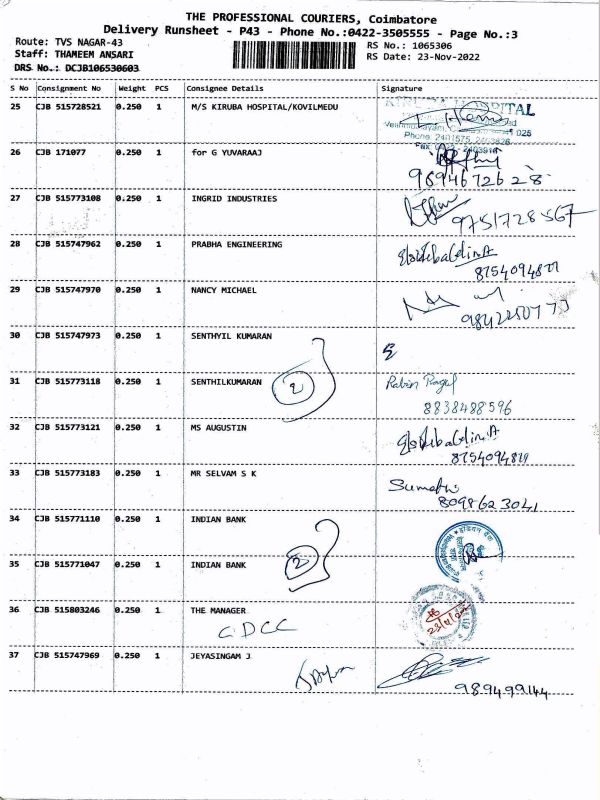 THE PROFESSIONAL COURIERS, Coimbatore
Delivery Runsheet - P43 - Phone No.:0422-3505555 - Page No.:3
Route: TVS NAGAR-43
Staff: THAMEEM ANSARI
DRS No.: DCJB106530603
RS No.: 1065306
RS Date: 23-Nov-2022
S No Consignment No Weight PCS Consignee Details Signature
25 CJB 515728521 0.250 1 M/S KIRUBA HOSPITAL/KOVILMEDU
26 CJB 171077 0.250 1 for G YUVARAAJ
9894672628
27 CJB 515773108 0.250 1 INGRID INDUSTRIES
9751728567
28 CJB 515747962 0.250 1 PRABHA ENGINEERING
29 CJB 515747970 0.250 1 NANCY MICHAEL
30 CJB 515747973 0.250 1 SENTHYIL KUMARAN
31 CJB 515773118 0.250 1 SENTHILKUMARAN 2
8838488596
32 CJB 515773121 0.250 1 MS AUGUSTIN
33 CJB 515773183 0.250 1 MR SELVAM S K
8098623041
34 CJB 515771110 0.250 1 INDIAN BANK
35 CJB 515771047 0.250 1 INDIAN BANK 2
36 CJB 515803246 0.250 1 THE MANAGER
CDCC
37 CJB 515747969 0.250 1 JEYASINGAM J
989499144